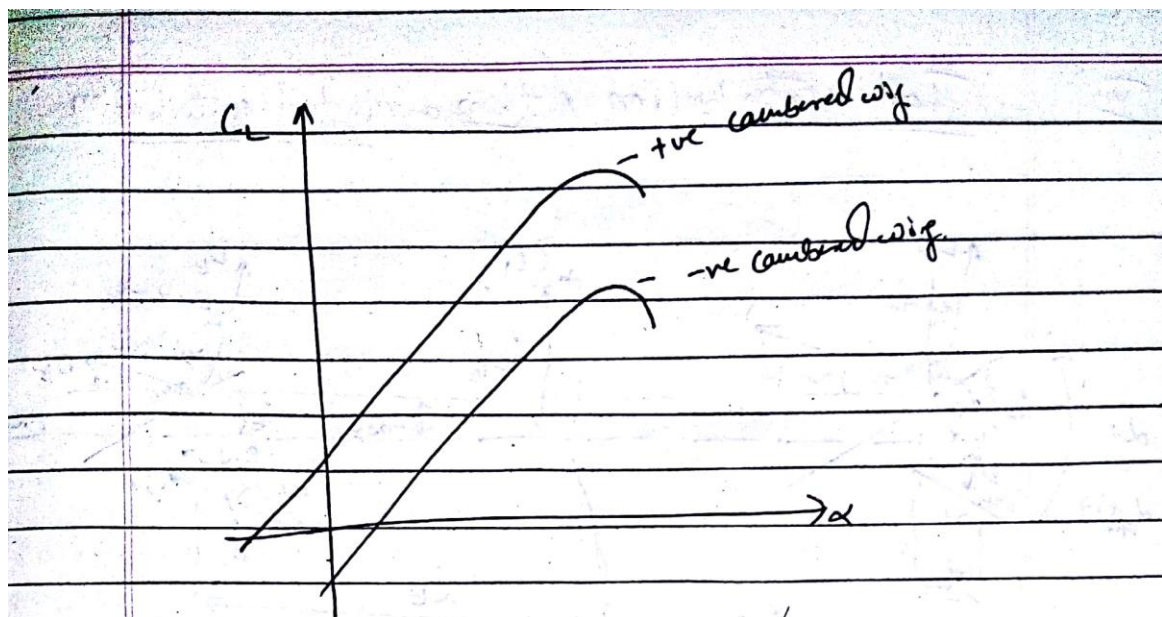 C_L
- +ve cambered wing
- -ve cambered wing.
α